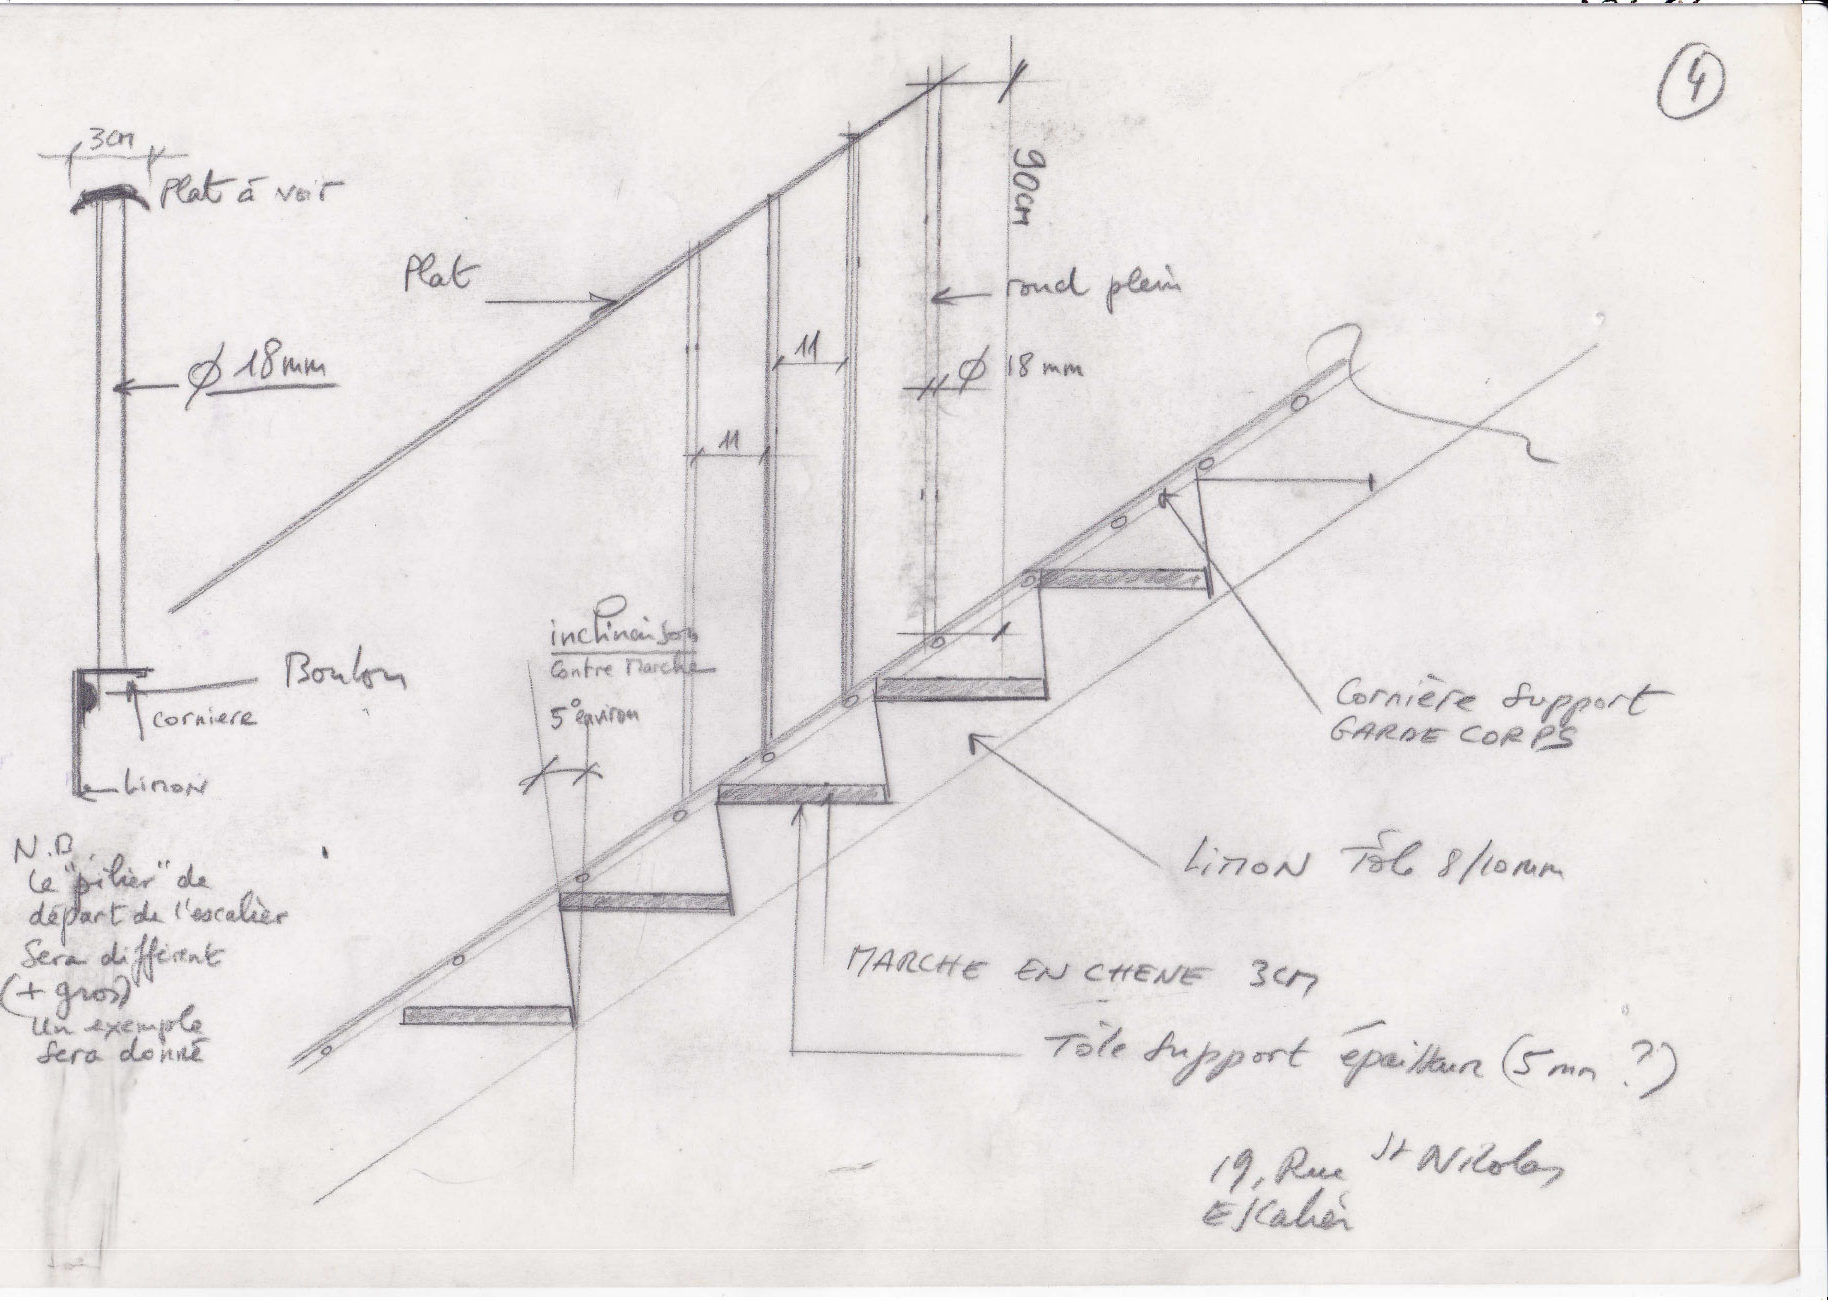 4
3cm
Plat à voir
Plat
90cm
rond plein
11
ϕ 18mm
ϕ 18mm
11
inclinaison
Contre Marche
5° environ
Boulon
corniere
Limon
Cornière Support
GARDE CORPS
N.B
Le "pilier" de
départ de l'escalier
Sera différent
(+ gros)
Un exemple
Sera donné
LIMON Tôle 8/10mm
MARCHE EN CHENE 3cm
Tôle Support épaisseur (5mm ?)
19, Rue St Nikolas
Escalier